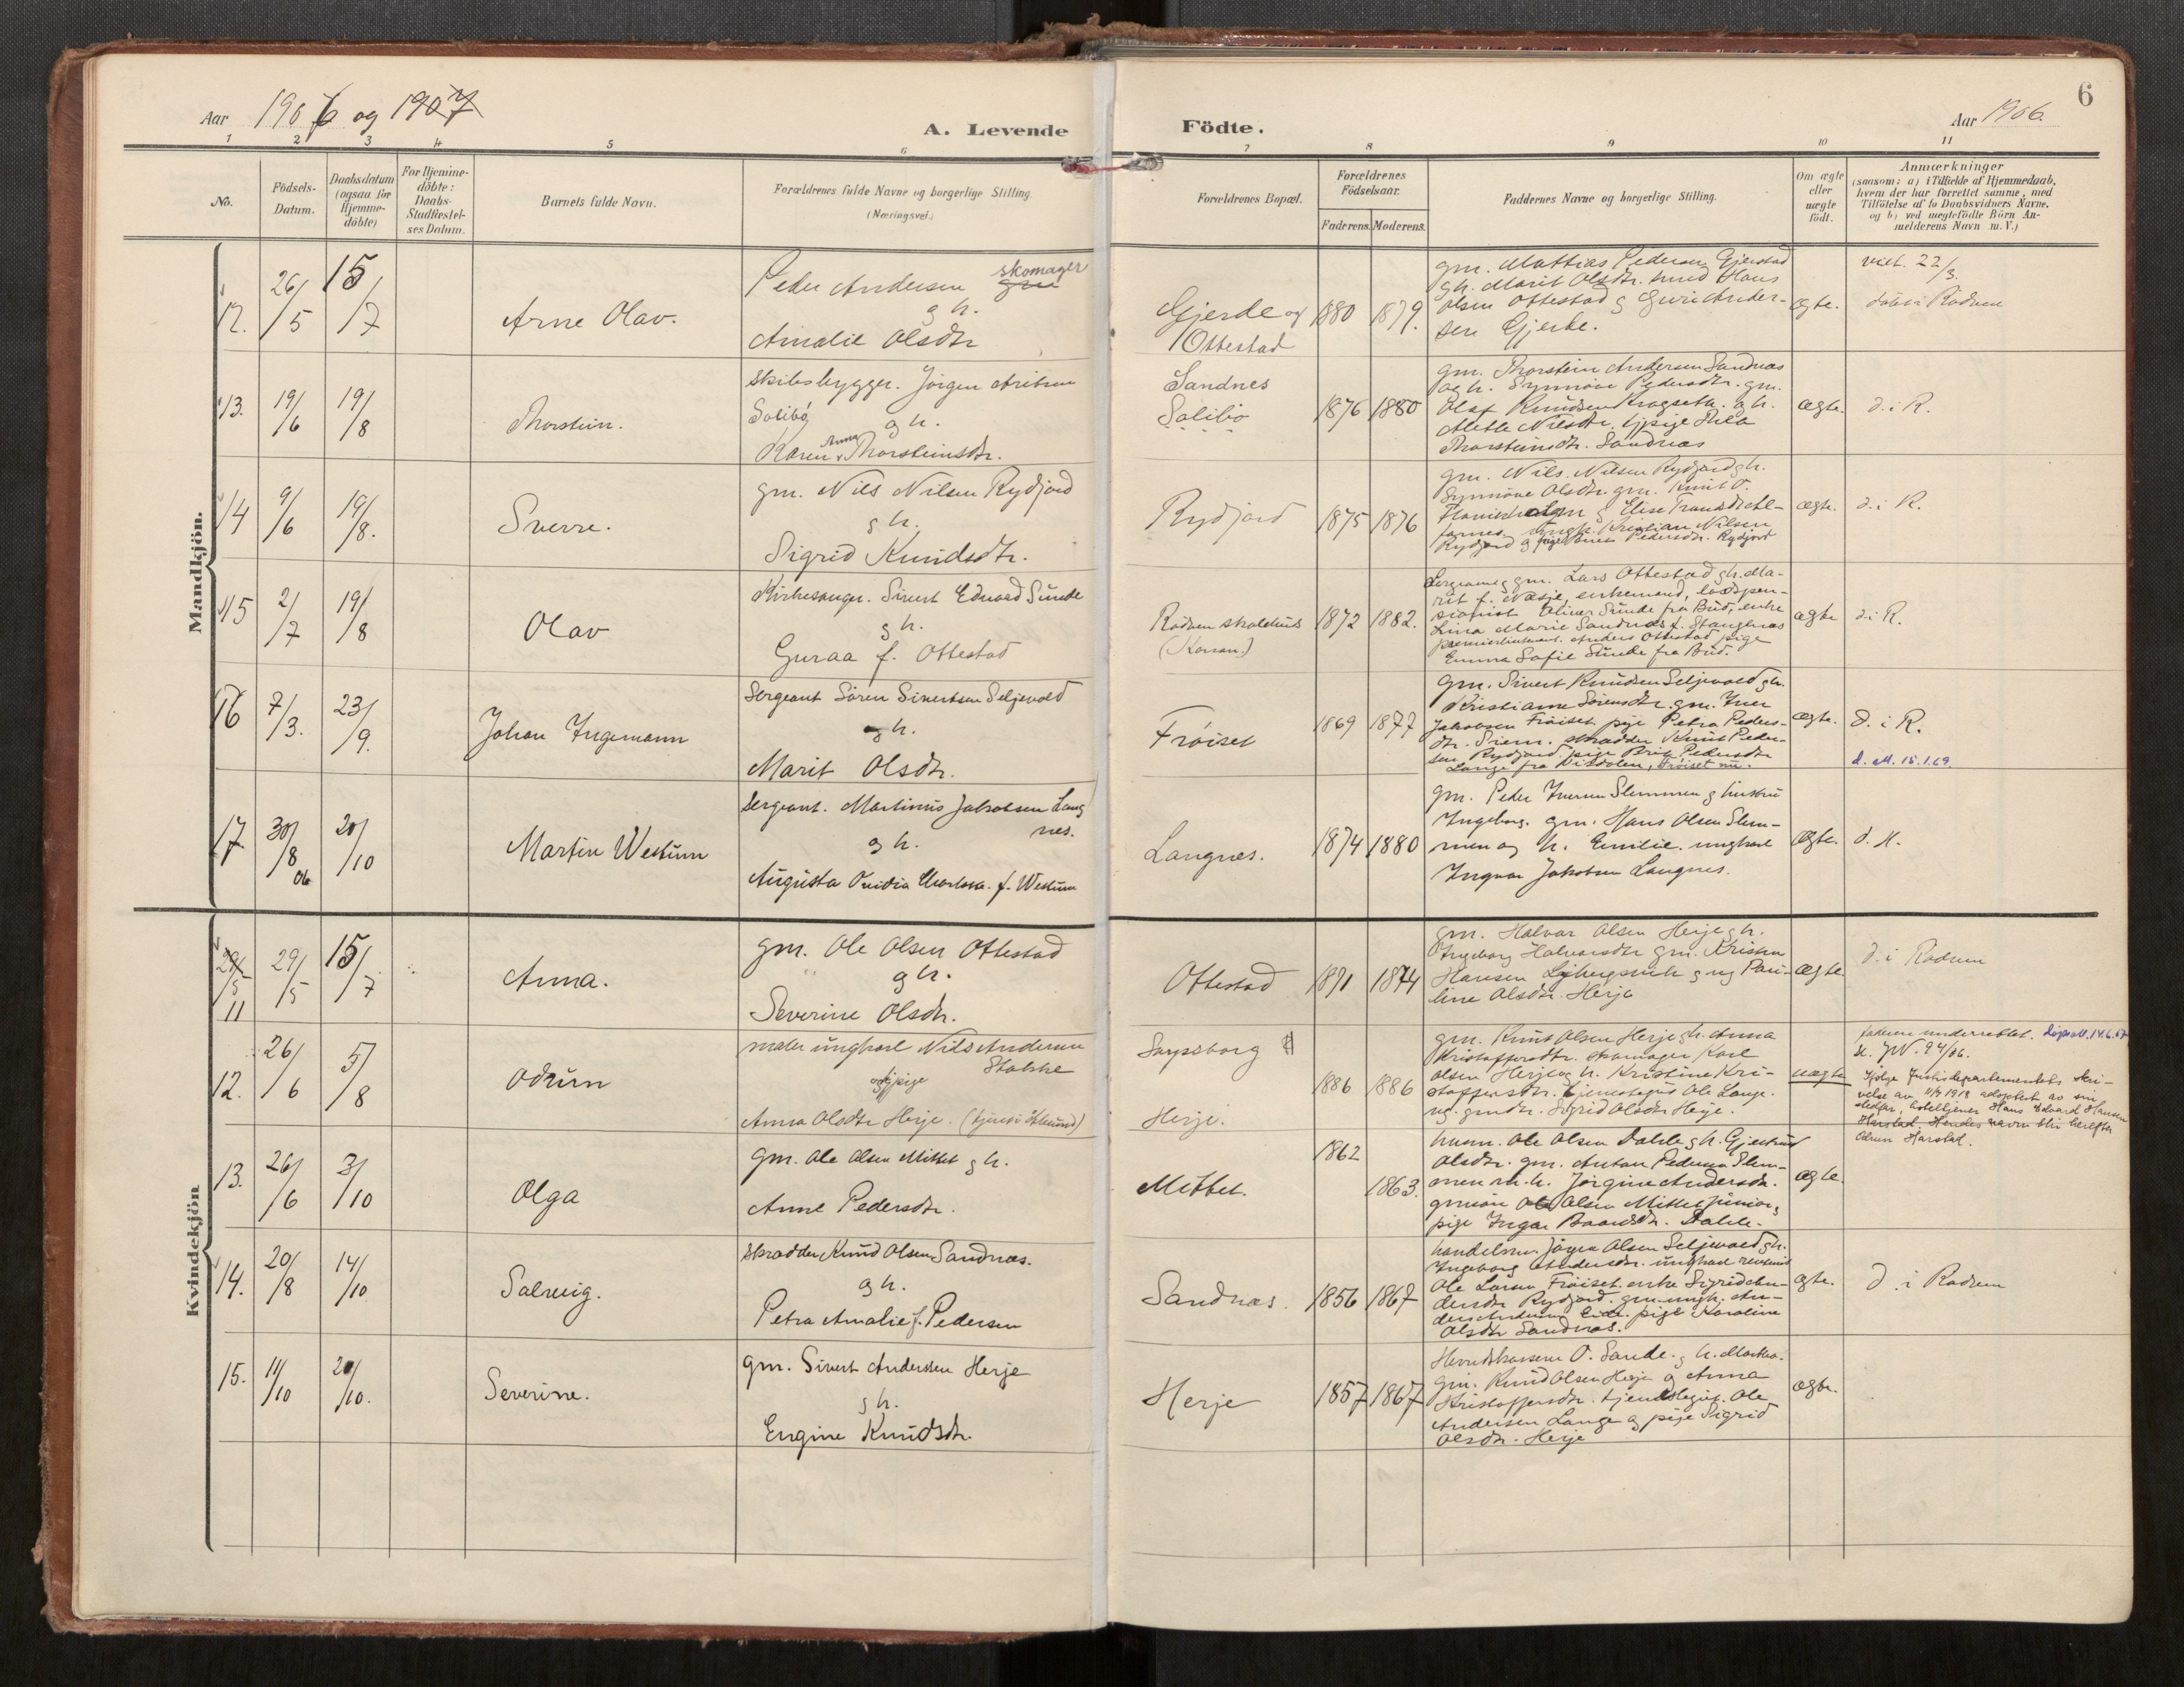 Aar 1906 og 1907
A. Levende
1 2 3 4 5 6
No.
Födsels-
Datum.
Daabsdatum
(ogsaa for
Hjemme-
döbte)
For Hjemme-
döbte:
Daabs-
Stadfæstel-
ses Datum.
Barnets fulde Navn.
Forældrenes fulde Navne og borgerlige Stilling
(Næringsvei.)
Mandkjön.
12. 26/5 15/7
Arne Olav.
Peder Andersen skomager
g h.
Amalie Olsdtr
13. 19/6 19/8
Thorstein.
Skibsbygger. Jörgen
Solibö g h.
Karen Anna Thorsteinsdtr.
14 9/6 19/8.
Sverre.
gm. Nils Nilsen Rydjord
g h.
Sigrid Knudsdtr.
15 2/7 19/8
Olav
Kirkesanger. Sivert Edvard Sunde
g h.
Guraa f. Ottestad
16 7/3. 23/9.
Johan Ingemann
Sergeant Sören Sivertsen Seljevold
g h.
Marit Olsdtr.
17. 30/8 06 20/10
Martin Westum
Sergeant. Martinus Jakobsen Lang
nes.
g h.
Augusta Ovidia f. Westum
Kvindekjön
29/5 11 29/5 15/7
Anna.
gm. Ole Olsen Ottestad
g h.
Severine Olsdtr.
12. 26/6 5/8
Odrun
maler ungkarl Nils Andersen
Stokke
og pige
Anna Olsdtr Herje.
13. 26/6 3/10
Olga
gm. Ole Olsen Mittet g h.
Anne Pedersdtr.
14. 20/8 14/10
Solveig.
Skrædder Knud Olsen Sandnæs.
g h.
Petra Amalie f. Pedersen
15. 11/10 20/10.
Severine.
gm. Sivert Anderssen Herje
g h.
Engine Knudsdtr.
Födte.
Aar 1906.
6
7 8 9 10 11
Forældrenes Bopæl.
Forældrenes
Födselsaar.
Faderens. Moderens.
Faddernes Navne og borgerlige Stilling.
Om ægte
eller
uægte
födt.
Anmærkninger
(saasom: a) i Tilfælde af Hjemmedaab,
hvem der har forrettet samme, med
Tilföielse af to Daabsvidners Navne,
og b) ved uægtefödte Börn An-
melderens Navn m. V.)
Gjerde og
Ottestad
1880 1879.
gm. Mathias Pedersen Gjerstad
gh. Marit Olsdtr. Hans
Olsen Ottestad g Guri Ander-
sen Gjerde.
ægte.
viet. 22/3.
döbt i Rödven
Sandnes
Solibö
1876 1880
gm. Thorstein Andersen Sandnæs
og h. Synnöve Pedersdtr. gm.
Olaf Knudsen Krogseth. g h.
Mette Nilsdtr. pige Thea
Thorsteinsdtr. Sandnæs
ægte.
d. i R.
Rydjord
1875 1876
gm. Nils Nilsen Rydjord g h.
Synnöve Olsdtr. gm. Knut O.
ungk. Kristian Nilsen
Rydjord g pige Pedersdtr. Rydjord
ægte.
d. i R.
Rödven skolehus
1872 1882.
gm. Lars Ottestad g h. Ma-
rit f. Næsje, enkemand, lods pen-
sionist Oliver Sunde fra Bud, enke
Lina Marie Sandnæs f. Stangnæs
premierleutnant. Anders Ottestad pige
Emma Sofie Sunde fra Bud.
ægte
d. i R.
Fröiset
1869 1877
gm. Sivert Knudsen Seljevold g h.
Kristianne Sörensdtr. gm. Iver
Jakobsen Fröiset pige Petra Peders-
dtr. Siem. skrædder Knut Peder-
sen Rydjord pige Brit Pedersdtr
Lange fra Visdalen, Fröiset nu.
ægte.
d. i R.
d. att. 15.1.69.
Langnes.
1874 1880
gm. Peder Iversen Slemmen g hustru
Ingeborg. gm. Hans Olsen Slem-
men og h. Emilie ungkarl
Ingvar Jakobsen Langnes.
ægte.
d. H.
Ottestad
1871 1874
gm. Halvor Olsen Herje g h.
Ingeborg Halvorsdtr gm. Kristen
Hansen g ug Pau-
line Olsdtr. Herje
ægte
d. i Rödven
Sarpsborg
Herje.
1886 1886
gm. Knut Olsen Herje g h. Anna
Kristoffersdtr. skomager Karl
Olsen Herje og h. Kristine Kri-
stoffersdtr. tjenestegut Ole Lange.
ug. gmdtr. Sigrid Olsdtr Herje.
uægte
faderen underrettet. Dåpsatt. 14.6.57
se JN. 94/06.
Ifölge Justisdepartementets skri-
velse av 1918 adoptert av sin
stedfar, hoteltjener Hans Edvard Hansen
Harstad. Hendes navn blir herefter
Odrun Harstad.
Mittet.
1862
1863.
husm. Ole Olsen Dahle g h. Gjertrud
Olsdtr. gm. Anton Pedersen Slem-
men m. h. Jörgine Andersdtr.
Ole Olsen Mittet junior,
pige Inga Baardsdtr. Dahle.
ægte.
Sandnæs.
1856 1867
handelsm. Jöger Olsen Seljevold g h.
Ingeborg Andersdtr. ungkarl
Ole Larsen Fröiset. enke Sigrid An-
dersdtr Rydjord. gm. ungk. An-
ders Andersen Eide. pige Karoline
Olsdtr Sandnæs.
ægte.
d. i Rödven
Herje
1857 1867
O. Sande. g h. Martha.
gm. Knud Olsen Herje og Anna
Kristoffersdtr. tjenestegut. Ole
Andersen Lange og pige Sigrid
Olsdtr. Herje
ægte.